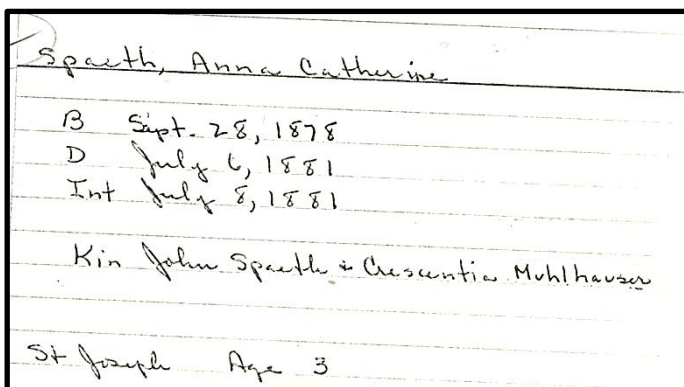 Spaeth, Anna Catherine
B Sept. 28, 1878
D July 6, 1881
Int July 8, 1881
Kin John Spaeth & Crescentia Muhlhauser
St Joseph Age 3